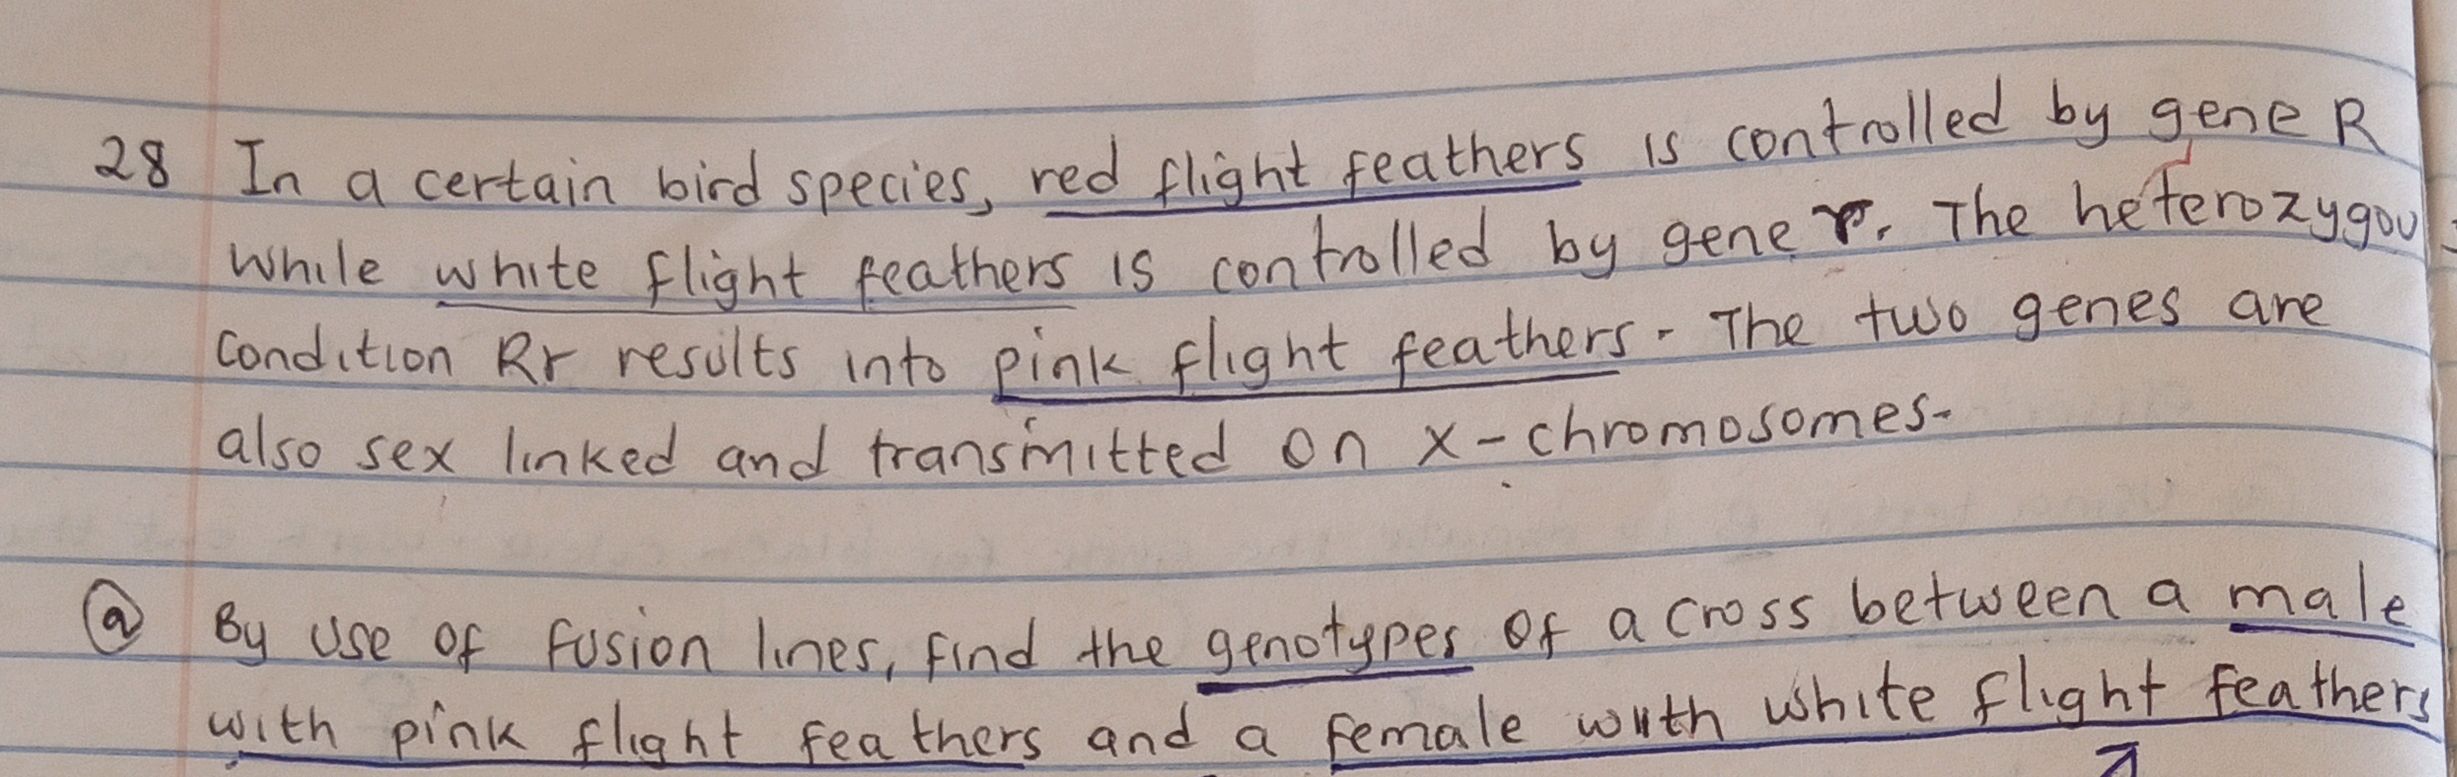 28 In a certain bird species, red flight feathers is controlled by gene R
While white flight feathers is controlled by gene r. The heterozygous
Condition Rr results into pink flight feathers. The two genes are
also sex linked and transmitted on x-chromosomes.
(a) By use of fusion lines, find the genotypes of a cross between a male
with pink flight feathers and a female with white flight feathers